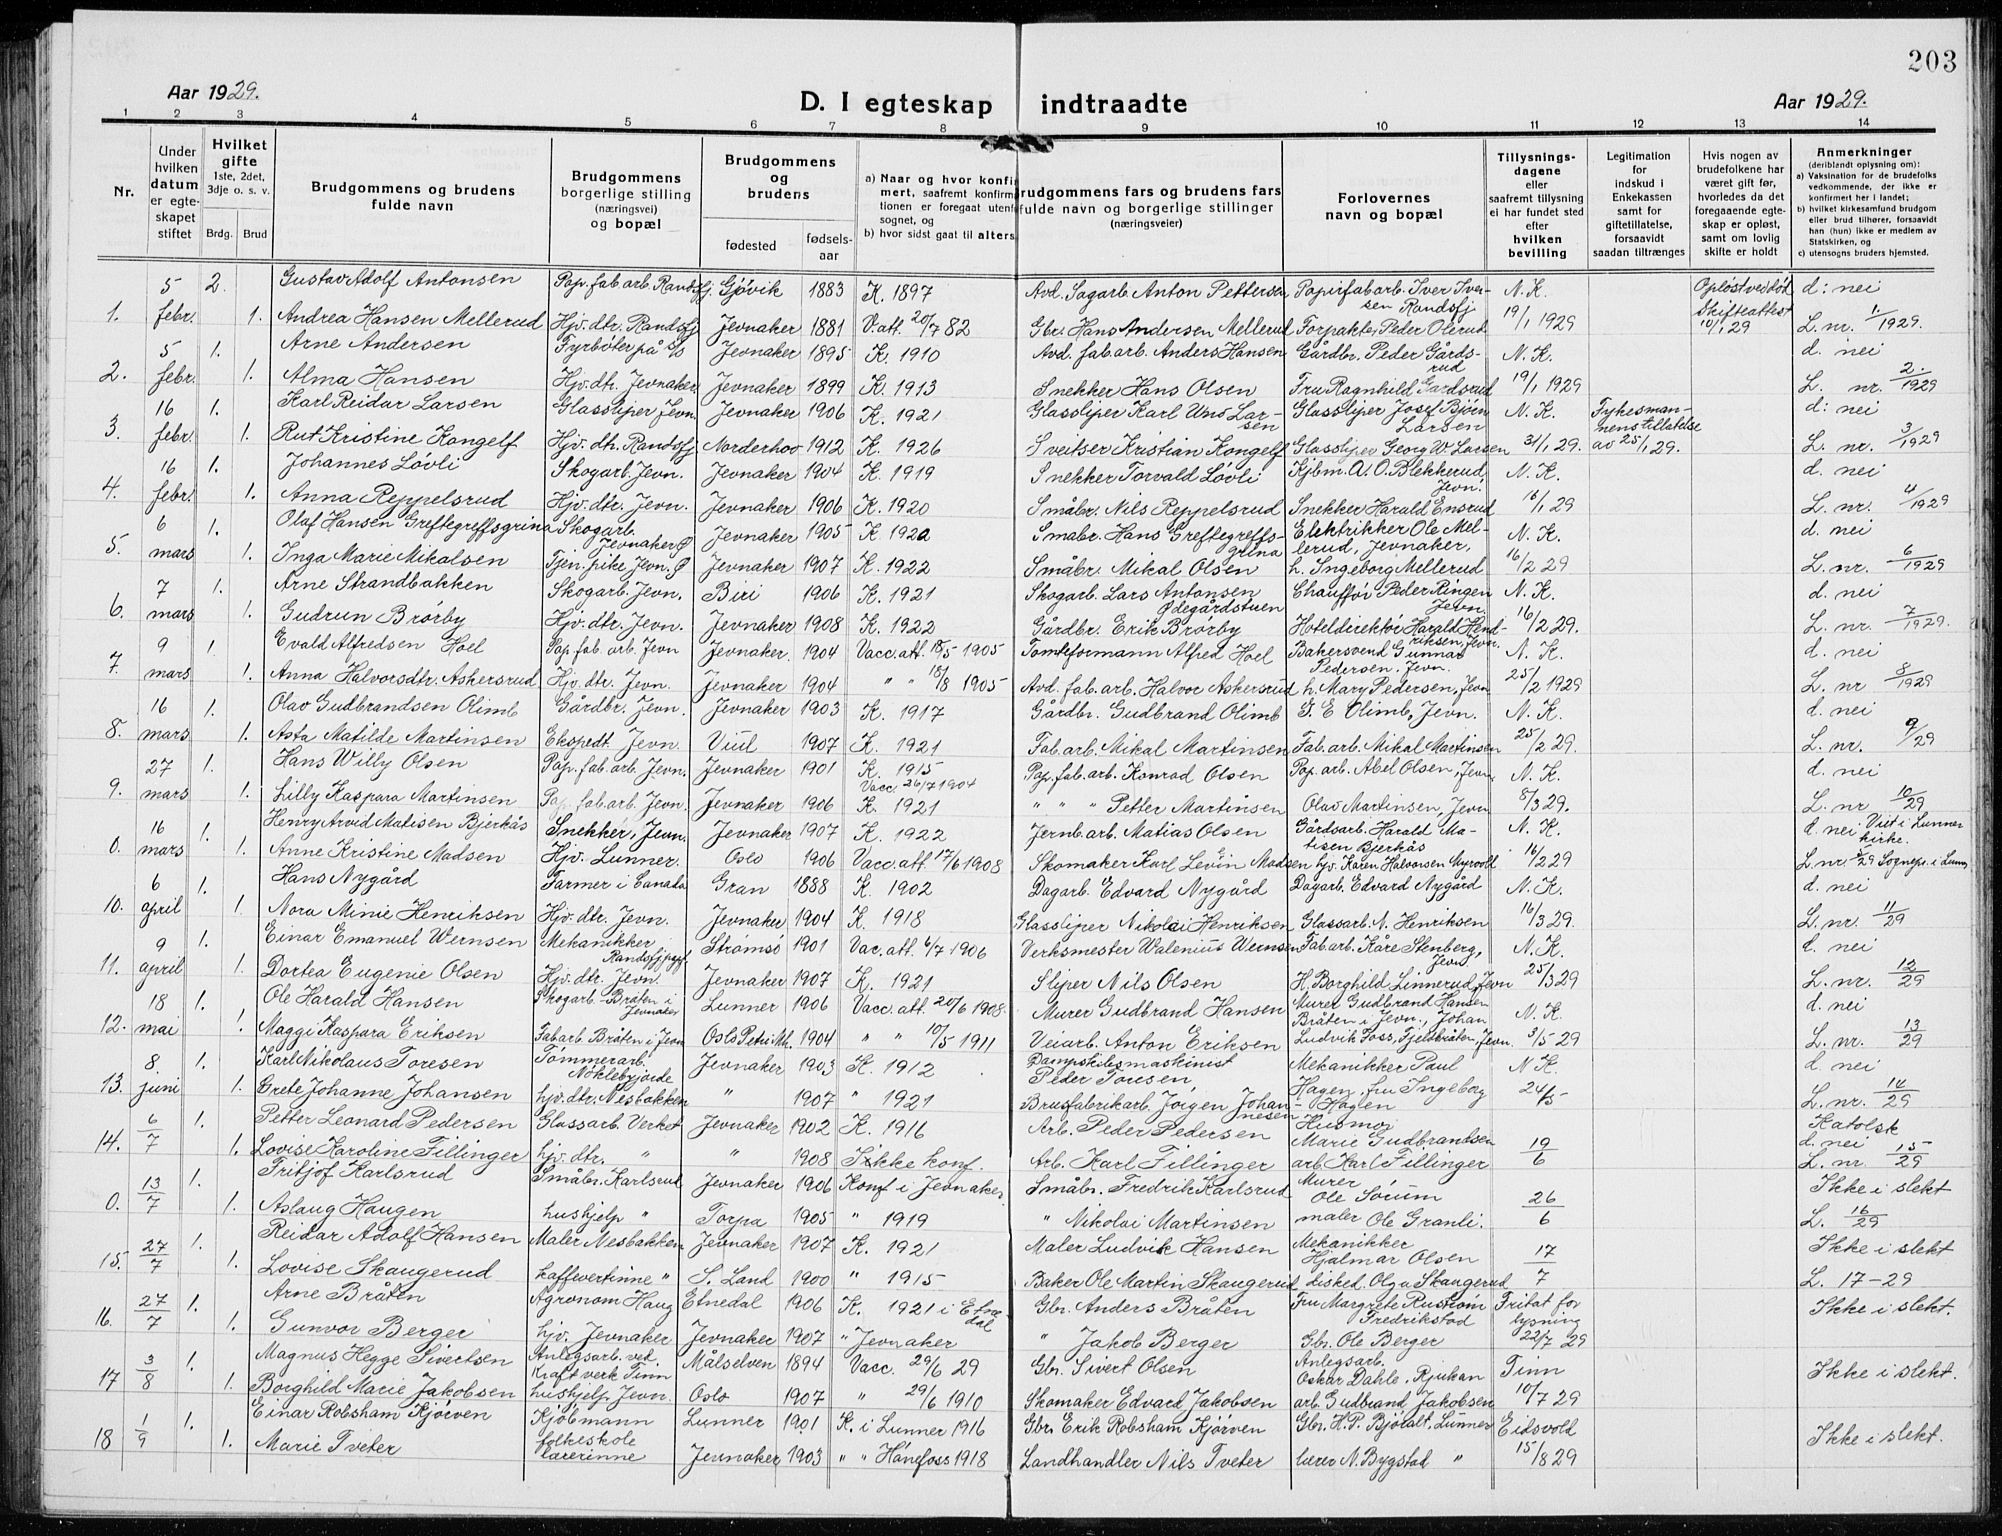 203
Aar 1929.
D. I egteskap indtraadte
Aar 1929.
1 2 3 4 5 6 7 8 9 10 11 12 13 14
Nr.
Under hvilken datum er egteskapet stiftet
Hvilket gifte 1ste, 2det, 3dje o. s. v.
Brdg. Brud
Brudgommens og brudens fulde navn
Brudgommens borgerlige stilling (næringsvei) og bopæl
Brudgommens og brudens
fødested fødselsaar
a) Naar og hvor konfirmert, saafremt konfirmationen er foregaat utenfor sognet, og
b) hvor sidst gaat til alters
Brudgommens fars og brudens fars fulde navn og borgerlige stillinger (næringsveier)
Forlovernes navn og bopæl
Tillysningsdagene eller saafremt tillysning ei har fundet sted efter hvilken bevilling
Legitimation for indskud i Enkekassen samt for giftetillatelse, forsaavidt saadan tiltrænges
Hvis nogen av brudefolkene har været gift før, hvorledes da det foregaaende egteskap er opløst, samt om lovlig skifte er holdt
Anmerkninger (deriblandt oplysning om):
a) Vaksination for de brudefolks vedkommende, der ikke er konfirmert her i landet;
b) hvilket kirkesamfund brudgom eller brud tilhører, forsaavidt han (hun) ikke er medlem av Statskirken, og
c) utensogns bruders hjemsted.
5 2. Gustav Adolf Antonsen Pap. fab. arb. Randsfj. Gjøvik 1883 K. 1897 Avd. Sagarb. Anton Pettersen Papirfabarb. Iver Iversen Randsfj N. K. Opløst ved død d: nei
1. febr. 1. Andrea Hansen Mellerud Hjv. dtr. Randsfj Jevnaker 1881 V. att. 20/7 82 Gbr. Hans Andersen Mellerud Forpakter Peder Olerud 19/1 1929 Skifteattest 10/1 29 L. nr. 1/1929.
5 1. Arne Andersen Fyrbøter på Jevnaker 1895 K. 1910 Avd. fab. arb. Anders Hansen Gårdbr. Peder Gårdsrud N. K. d. nei
2. febr. 1. Alma Hansen Hjv. dtr. Jevnaker. Jevnaker 1899 K. 1913 Snekker Hans Olsen Fru Ragnhild Gardsrud 19/1 1929 L. nr. 2./1929
16 1. Karl Reidar Larsen Glassliper Jevn. Jevnaker 1906 K. 1921 Glassliper Karl Uno Larsen Glassliper Josef Bjørn Larsen N. K. Fykesmannens tillatelse av 25/1 29. d: nei
3. febr. 1. Rut Kristine Kongelf Hjv. dtr. Randsfj Norderhov 1912 K. 1926 Sveitser Kristian Kongelf Glassliper Georg W. Larsen 31/1 29. L. nr. 3/1929
16 1. Johannes Løvli Skogarb. Jevn. Jevnaker 1904 K. 1919 Snekker Torvald Løvli Kjbm. A. O. Blekkerud Jevn. N. K. d. nei
4. febr. 1. Anna Reppelsrud Hjv. dtr. Jevn. Jevnaker 1906 K. 1920 Småbr. Nils Reppelsrud Snekker Harald Ensrud 16/1 29 L. nr. 4/1929
6 1. Olaf Hansen Greftegreffsgrina Skogarb. Jevnaker Ø Jevnaker 1905 K. 1920 Smabr. Hans Greftegreffsgrina Elektrikker Ole Mellerud, Jevnaker, N. K. d. nei
5. mars 1. Inga Marie Mikalsen Tjen. pike Jevn. Ø Jevnaker 1907 K. 1922 Småbr. Mikal Olsen h. Ingeborg Mellerud 16/2 29 L. nr. 6/1929
7 1. Arne Strandbakken Skogarb. Jevn. Biri 1906 K. 1921 Skogarb. Lars Antonsen Ødegårdstuen Chauffør Peder Ringen Jevn. N. K. d. nei
6. mars 1. Gudrun Brørby Hjv. dtr. Jevn. Jevnaker 1908 K. 1922 Gårdbr. Erik Brørby Hoteldirektør Harald Hendriksen, Jevn. 16/2 29. L. nr. 7/1929.
9 1. Evald Alfredsen Hoel Pap. fab. arb. Jevn Jevnaker. 1904 Vacc. att. 18/5 1905 Tomteformann Alfred Hoel Bakersvend Gunnar Pedersen, Jevn. N. K. d. nei
7. mars 1. Anna Halvorsdtr. Askersrud Hjv. dtr. Jevn. Jevnaker 1904 " " 18/8 1905 Avd. fab. arb. Halvor Askersrud h. Mary Pedersen, Jevn 25/2 1929 L. nr 8/1929
16 1. Olav Gudbrandsen Olimb Gårdbr. Jevn. Jevnaker 1903 K. 1917 Gårdbr. Gudbrand Olimb G. E Olimb, Jevn. N. K. d. nei
8. mars 1. Asta Matilde Martinsen Ekspedt. Jevn. Viul 1907 K. 1921 Fab. arb. Mikal Martinsen Fab. arb. Mikal Martinsen 25/2 29. L. nr. 9/29
27 1. Hans Willy Olsen Pap. fab. arb. Jevn. Jevnaker 1901 K. 1915 Vacc. 26/7 1904 Pap. fab. arb. Konrad Olsen Pap. arb. Abel Olsen, Jevn. N. K. d. nei
9. mars 1. Lilly Kaspara Martinsen Pap. fab. arb. Jevn. Jevnaker 1906 K. 1921 " " " Petter Martinsen Olav Martinsen, Jevn 8/3 29. L. nr 10/29
16 1. Henry Arvid Matisen Bjerkås Snekker, Jevn. Jevnaker 1907 K. 1922 Jernb. arb. Matias Olsen Gårdsarb. Harald Matisen Bjerkås N. K. d. nei Viet i Lunner kirke.
0. mars 1. Anne Kristine Madsen Hjv. Lunner. Oslo 1906 Vacc. att. 17/6 1908 Skomaker Karl Levin Madsen hjv. Karen Halvorsen Myrvoll 16/2 29 L. nr 5/29 Sognepr. i Lunner
6 1. Hans Nygård Farmer i Canada Gran 1888 K. 1902 Dagarb. Edvard Nygård Dagarb. Edvard Nygård N. K. d. nei
10. april 1. Nora Minie Henriksen Hjv. dtr. Jevn. Jevnaker 1904 K. 1918 Glassliper Nikolai Henriksen Glassarb. N. Henriksen 16/3 29. L. nr. 11/29
9 1. Einar Emanuel Wernsen Mekanikker Strømsø 1901 Vac. att. 6/7 1906 Verksmester Walenius Wernsen Fab. arb. Kåre Stenberg, Jevn. N. K. d. nei
11. april 1. Dortea Eugenie Olsen Hjv. dtr. Jevn. Jevnaker 1907 K. 1921 Sliper Nils Olsen H. Borghild Linnerud, Jevn 25/3 29 L. nr. 12/29
18 1. Ole Harald Hansen Skogarb. Bråten i Jevnaker Lunner 1906 Vacc. att. 20/6 1908. Murer Gudbrand Hansen Murer Gudbrand Hansen Bråten i Jevn., Johan N. K. d. nei
12. mai 1. Maggi Kaspara Eriksen Fabarb. Bråten i Jevn Oslo Petri Mh. 1904 " " 10/5 1911 Veiarb. Anton Eriksen Ludvik Foss, Fjeldbråten, Jevn. 3/5-29 L. nr. 13/29
8. 1. Karl Nikolaus Toresen Tømmerarb. Nøklebyeide Jevnaker 1903 K. 1912 Dampskibsmaskinist Peder Toresen, Mekanikker Paul N. K. d. nei
13. juni 1. Grete Johanne Johansen hjv. dtr. Nesbakken " 1907 " 1921 Brusfabrikarb. Jørgen Johannesen Hagen, fru Ingeborg Hagen 24/5 L. nr. 14/29
6/7 1. Petter Leonard Pedersen Glassarb. Verket Jevnaker 1902 K. 1916 Arb. Peder Pedersen Husmor Marie Gudbrandsen 19/6 Katolsk d. nei
14. 1. Lovise Karoline Fillinger hjv. dtr. " " 1908 Ikke konf. Arb. Karl Fillinger arb. Karl Fillinger L. nr 15/29
13/7 1. Fritjof Karlsrud Småbr. Karlsrud Jevnaker 1906 Konf i Jevnaker Småbr. Fredrik Karlsrud Murer Ole Sørum 26/6 Ikke i slekt
0. 1. Aslaug Haugen hushjelp " Torpa 1905 " 1919 " Nikolai Martinsen maler Ole Granli. L. 16/29
27/7 1. Reidar Adolf Hansen Maler Nesbakken Jevnaker 1907 K. 1921 Maler Ludvik Hansen Mekanikker Hjalmar Olsen 17/7 Ikke i slekt
15. 1. Lovise Skaugerud kaffevertinne " S. Land 1900 " 1915 Baker Ole Martin Skaugerud Olga Skaugerud L. 17-29
27/7 1. Arne Bråten Agronom Haug Etnedal 1906 K. 1921 i Etnedal Gbr. Anders Bråten Fru Margrete Fredrikstad Fritat for lysning 22/7 29 Ikke i slekt.
16. 1. Gunvor Berger hjv. Jevnaker Jevnaker 1907 " Jevnaker " Jakob Berger Gbr. Ole Berger
3/8 1. Magnus Hegge Sivertsen Anlegsarb. ved Kraftverk Tinn Målselven 1894 Vacc. 29/6 29 Gbr. Sivert Olsen Anlegsarb. Oskar Dahle, Rjukan Tinn Ikke i slekt.
17 1. Borghild Marie Jakobsen hushjelp Jevn. Oslo 1907 " 29/6 1910 Skomaker Edvard Jakobsen arb. Gudbrand Jakobsen 10/7 29
1/9 1. Einar Robsham Kjørven Kjøbmann Lunner 1901 K. i Lunner 1916 Gbr. Erik Robsham Kjørven Gbr. H. P. Bjøralt, Lunner Eidsvold Ikke i slekt.
18 1. Marie Tveter folkeskole lærerinne Jevnaker 1903 " " Hønefoss 1918 Landhandler Nils Tveter lærer N. Bygstad " 15/8 29